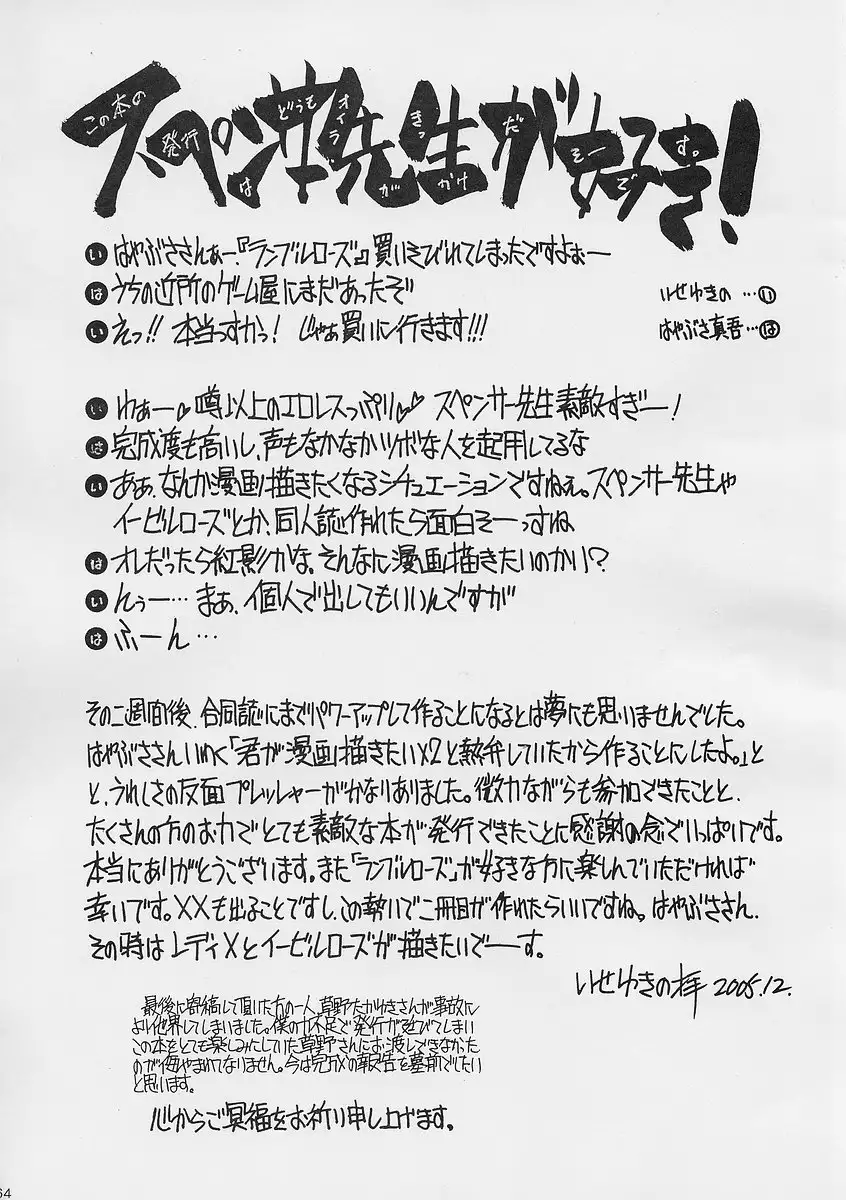 スペンサー先生が好き!
この本の発行はどうもオイラがきっかけだそーです。
い はやぶささんぁー、『ランブルローズ』買いそびれてしまったですよぉー
は うちの近所のゲーム屋にまだあったぞ
い えっ!! 本当っすかっ! じゃぁ買いに行きます!!!
いせゆきの…い
はやぶさ真吾…は
い わぁー♡噂以上のエロレスっぷり♡♡ スペンサー先生素敵すぎー!
は 完成度も高いし、声もなかなかツボな人を起用してるな
い あぁ、なんか漫画描きたくなるシチュエーションですねぇ。スペンサー先生や
イービルローズとか、同人誌作れたら面白そーっすね
は オレだったら紅影かな。そんなに漫画描きたいのかい?
い んぅー… まぁ、個人で出してもいいんですが
は ふーん…
その二週間後、合同誌にまでパワーアップして作ることになるとは夢にも思いませんでした。
はやぶささんいわく「君が漫画描きたいx2と熱弁していたから作ることにしたよ。」と
と、うれしさの反面プレッシャーがかなりありました。微力ながらも参加できたことと、
たくさんの方のお力でとても素敵な本が発行できたことに感謝の念でいっぱいです。
本当にありがとうございます。また「ランブルローズ」が好きな方に楽しんでいただければ
幸いです。XXも出ることですし、この勢いで二冊目が作れたらいいですね。はやぶささん、
その時はレディXとイービルローズが描きたいでーす。
いせゆきの拝 2005.12.
最後に寄稿して頂いた方の一人、草野たかゆきさんが事故に
より他界してしまいました。僕の力不足で発行が延びてしまい
この本をとても楽しみにしていた草野さんにお渡しできなかった
のが悔やまれてなりません。今は完成の報告を墓前でしたい
と思います。
心からご冥福をお祈り申し上げます。
64